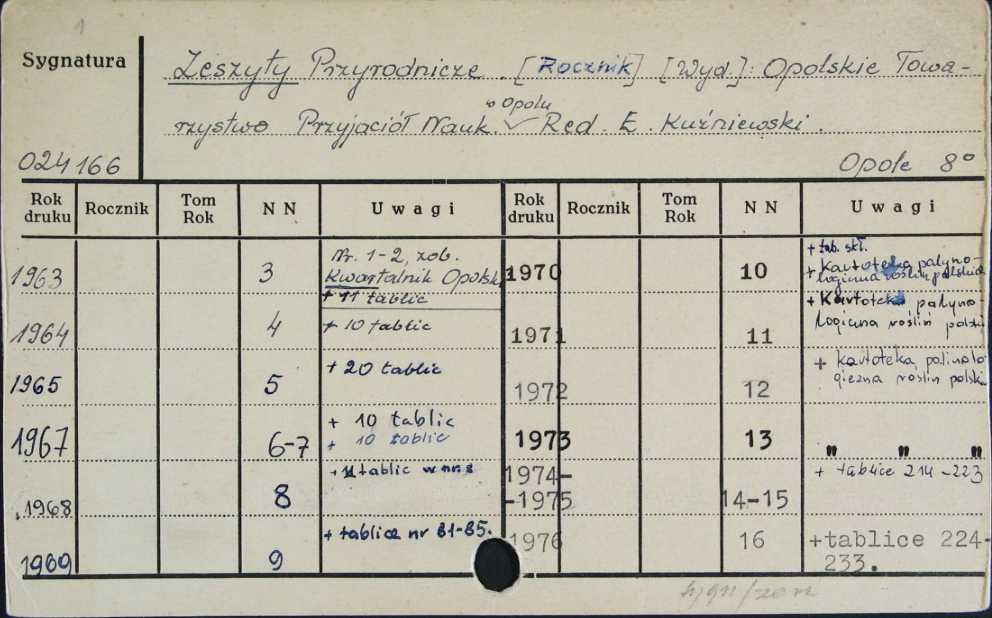 1
Sygnatura
Zeszyty Przyrodnicze. [Rocznik] [Wyd.]: Opolskie Towa-
w Opolu
rzystwo Przyjaciół Nauk. Red. E. Kuźniewski.
024166
Opole 8°
Rok druku Rocznik Tom Rok N N Uwagi Rok druku Rocznik Tom Rok N N Uwagi
1963 3 Nr. 1-2, zob. Kwartalnik Opolsk + 11 tablic
1964 4 + 10 tablic
1965 5 + 20 tablic
1967 6-7 + 10 tablic + 10 tablic
1968 8 + 11 tablic
1969 9 + tablice nr 81-85.
1970 10 + tab. skł. + Kartoteka palyno-logiczna roślin polskich
1971 11 + Kartoteka palyno-logiczna roślin polski
1972 12 + kartoteka palinolo-giczna roślin polsk
1973 13 " " "
1974--1975 14-15 + tablice 214-223
1976 16 +tablice 224-233.